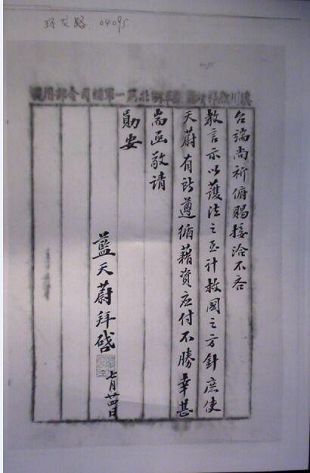 04095
台端尚祈俯賜接洽不吝
教言示以護法之至計救國之方針庶使
天蔚有所遵循藉資應付不勝幸甚
耑函敬請
勛安
藍天蔚拜啓
七月廿四日